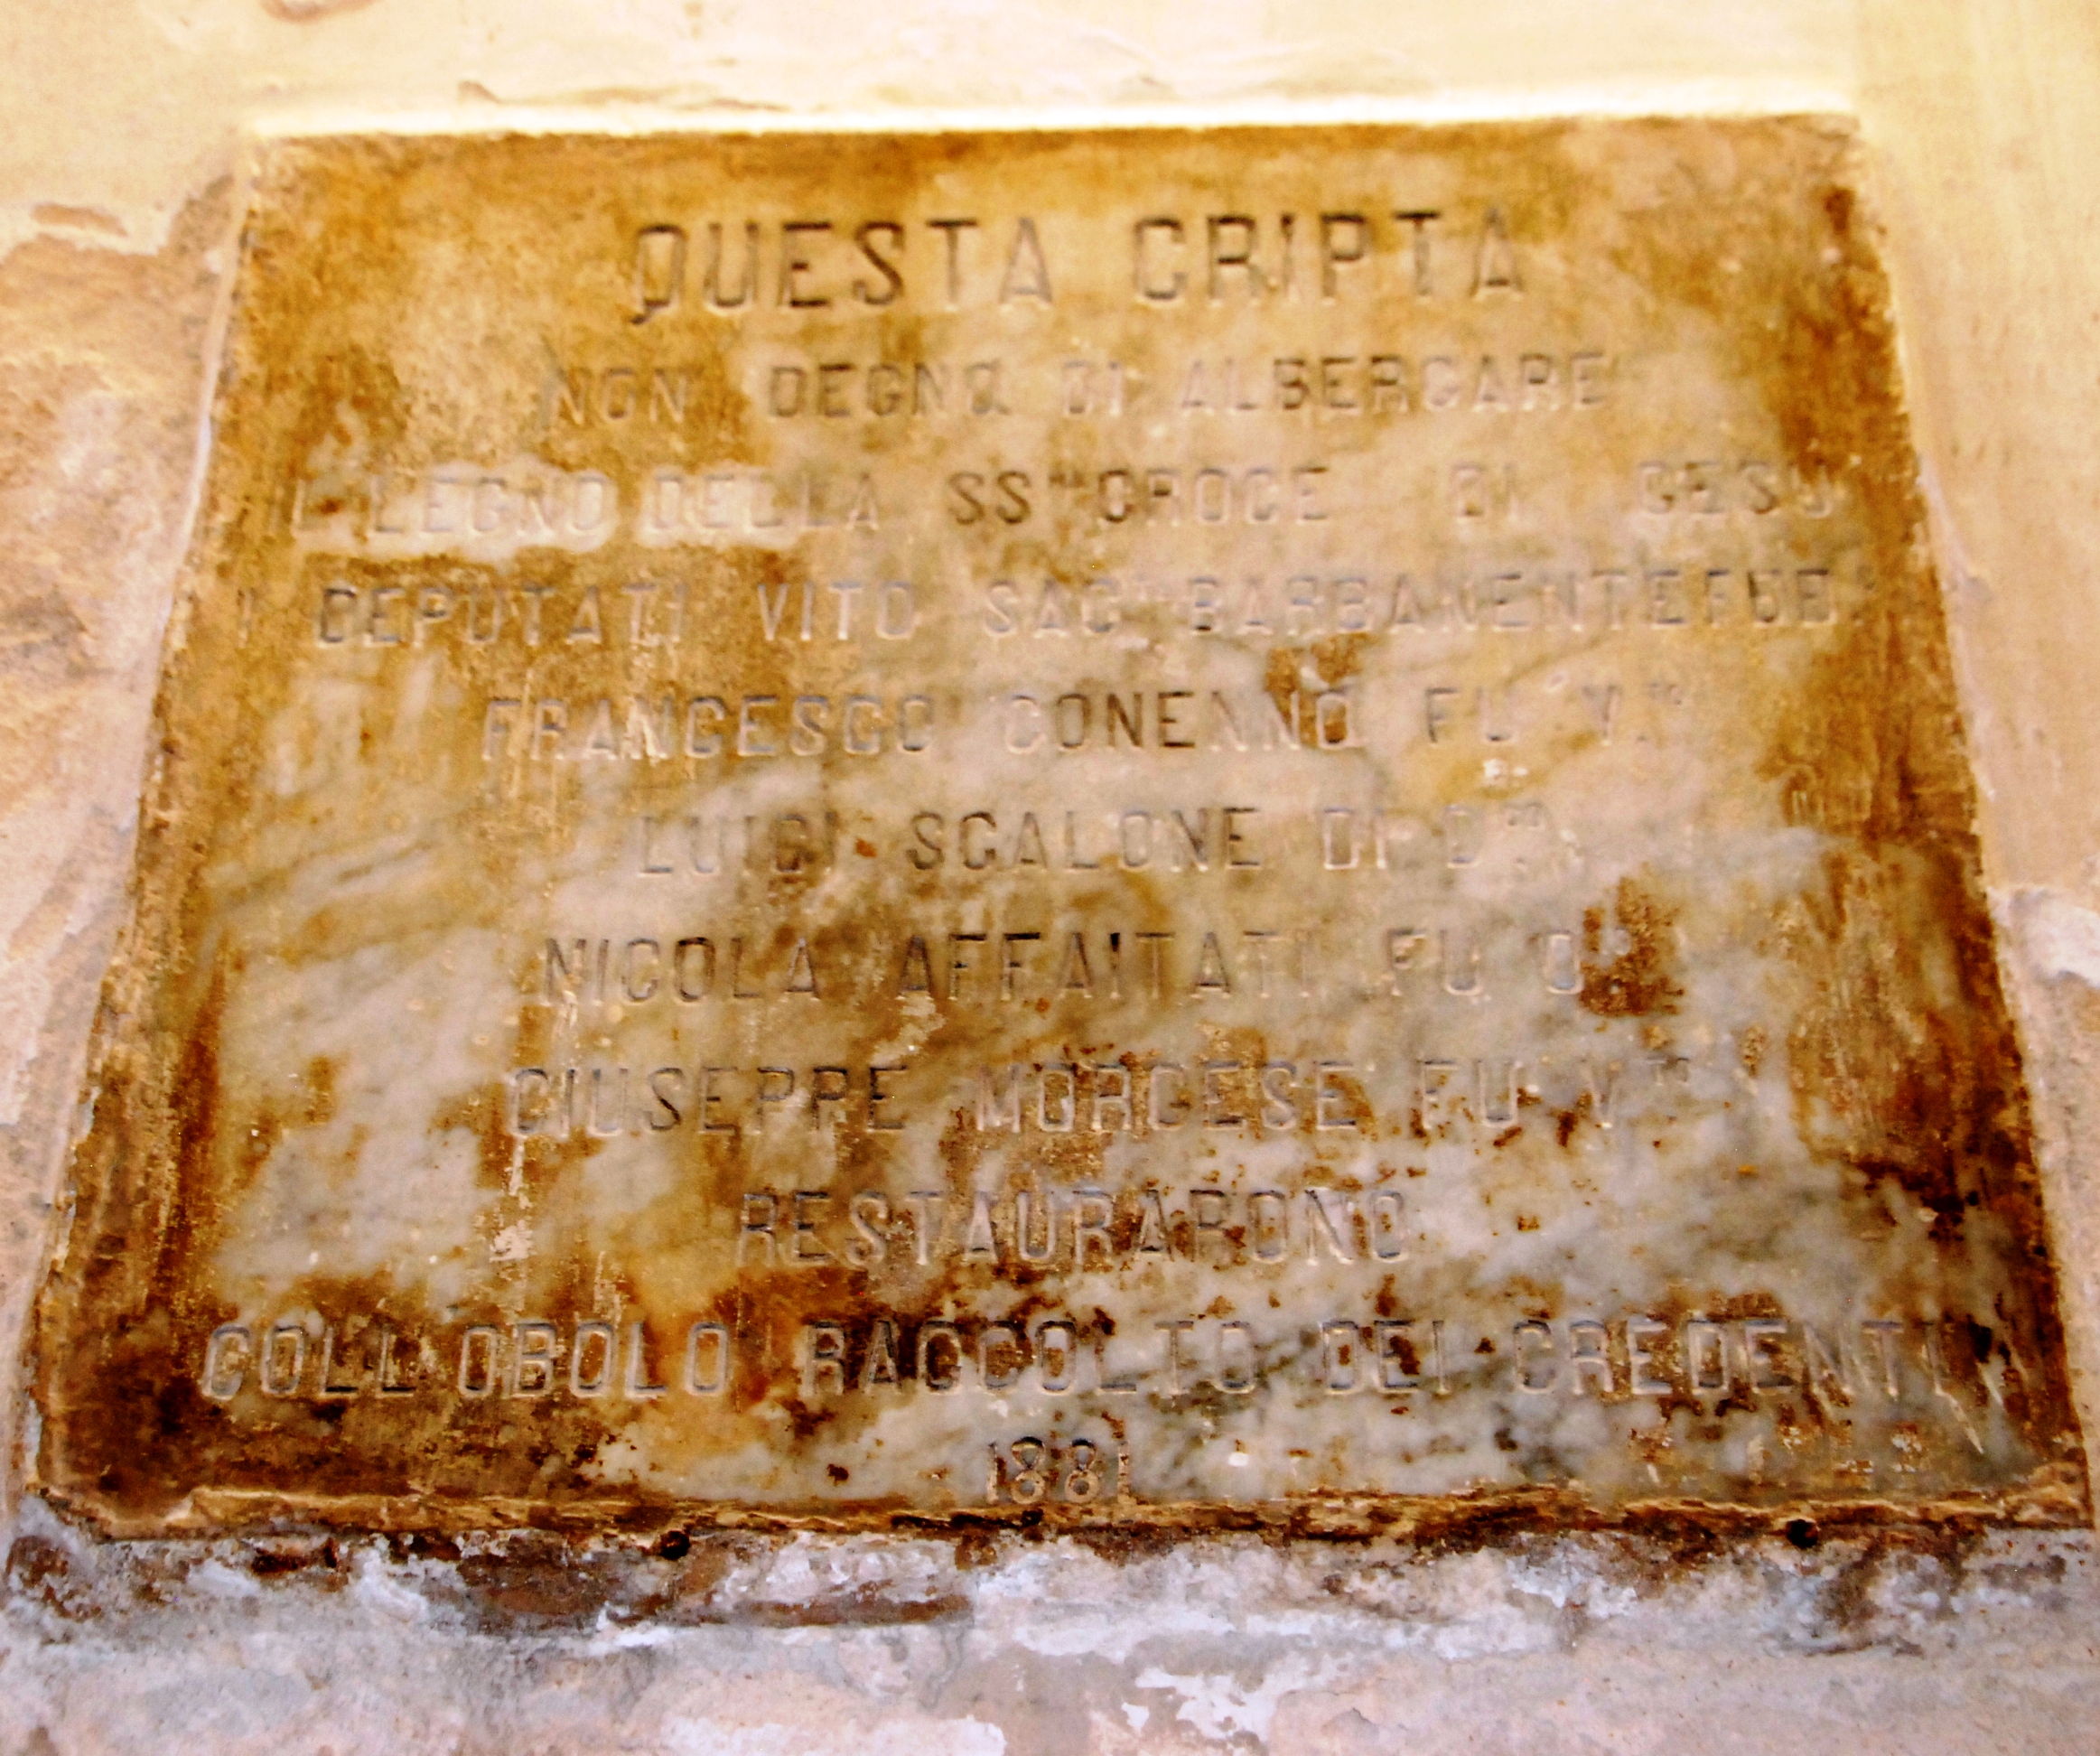 QUESTA CRIPTA
NON DEGNA DI ALBERGARE
IL LEGNO DELLA SS.MA CROCE DI GESÙ
I DEPUTATI VITO SAC. BARBANENTE FU
FRANCESCO CONENNO FU V.TO
LUIGI SCALONE DI D.CO
NICOLA AFFAITATI FU
GIUSEPPE MORGESE FU V.TO
RESTAURARONO
COLL'OBOLO RACCOLTO DEI CREDENTI
1881